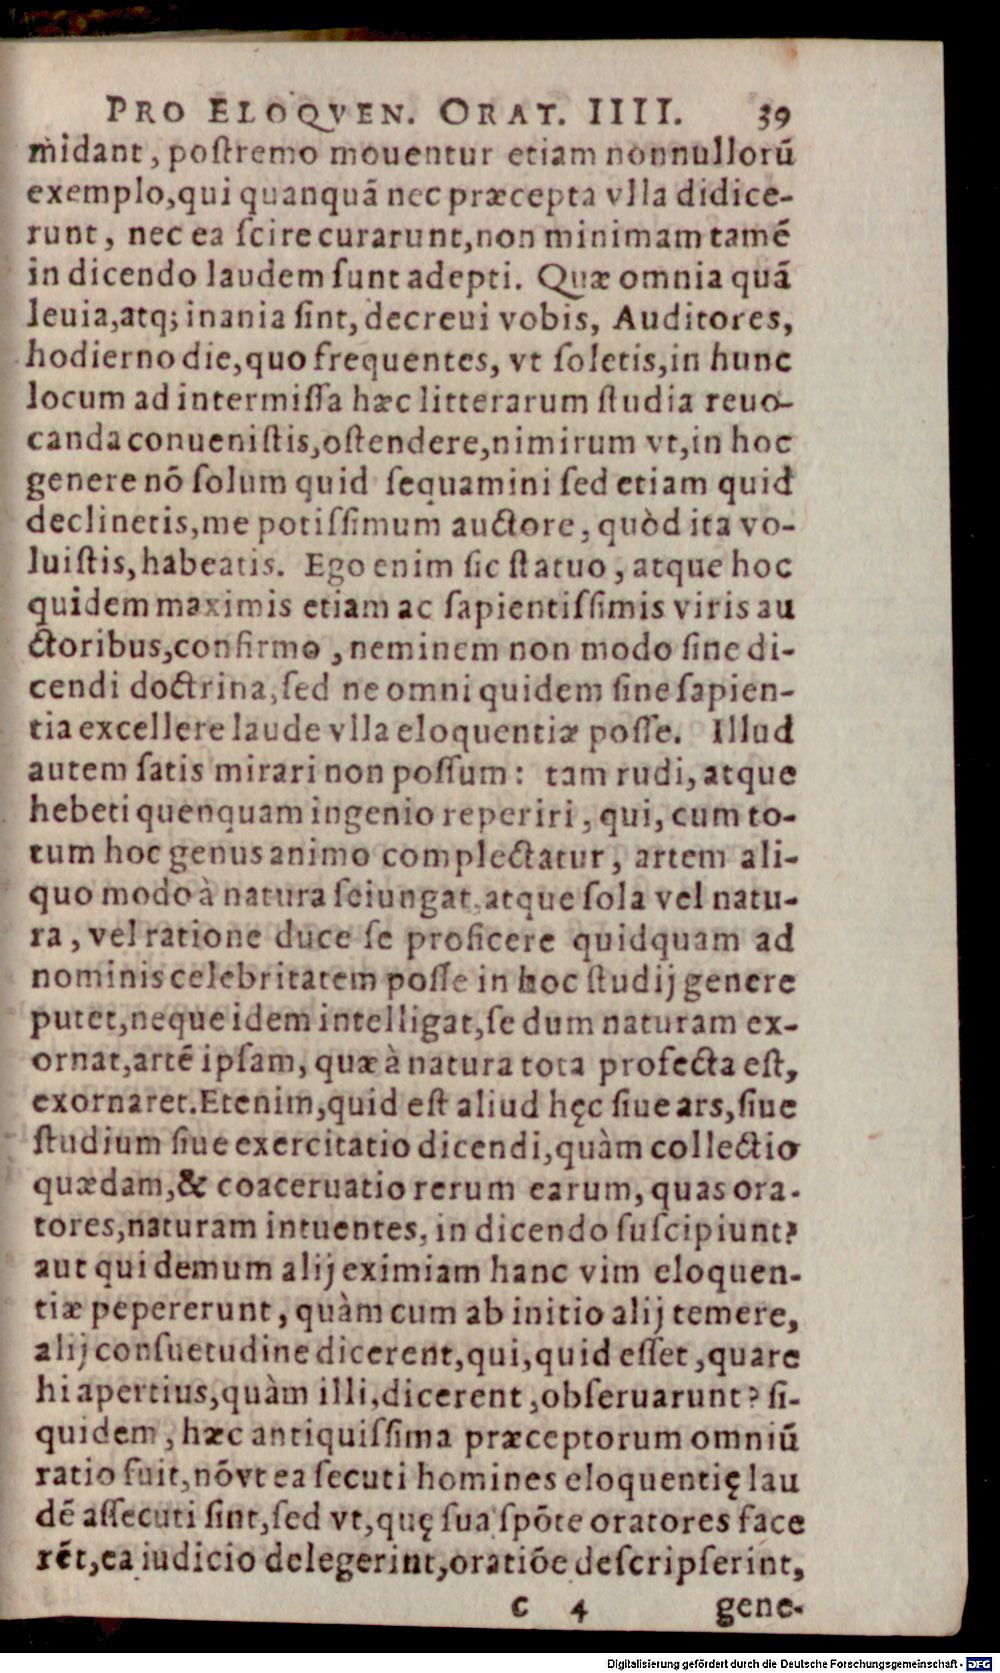 PRO ELOQVEN. ORAT. IIII. 39
midant, poſtremo mouentur etiam nonnullorũ
exemplo,qui quanquã nec præcepta vlla didice-
runt, nec ea ſcire curarunt,non minimam tamẽ
in dicendo laudem ſunt adepti. Quæ omnia quã
leuia,atq; inania ſint, decreui vobis, Auditores,
hodierno die,quo frequentes, vt ſoletis,in hunc
locum ad intermiſſa hæc litterarum ſtudia reuo-
canda conueniſtis,oſtendere,nimirum vt,in hoc
genere nõ ſolum quid ſequamini ſed etiam quid
declinetis,me potiſſimum auctore, quòd ita vo-
luiſtis, habeatis. Ego enim ſic ſtatuo, atque hoc
quidem maximis etiam ac ſapientiſſimis viris au
ctoribus,confirmo, neminem non modo ſine di-
cendi doctrina,ſed ne omni quidem ſine ſapien-
tia excellere laude vlla eloquentiæ poſſe. Illud
autem ſatis mirari non poſſum: tam rudi, atque
hebeti quenquam ingenio reperiri, qui, cum to-
tum hoc genus animo complectatur, artem ali-
quo modo à natura ſeiungat, atque ſola vel natu-
ra, vel ratione duce ſe proficere quidquam ad
nominis celebritatem poſſe in hoc ſtudij genere
putet,neque idem intelligat,ſe dum naturam ex-
ornat,artẽ ipſam, quæ à natura tota profecta eſt,
exornaret.Etenim,quid eſt aliud hęc ſiue ars,ſiue
ſtudium ſiue exercitatio dicendi,quàm collectio
quædam,& coaceruatio rerum earum, quas ora-
tores,naturam intuentes, in dicendo ſuſcipiunt?
aut qui demum alij eximiam hanc vim eloquen-
tiæ pepererunt, quàm cum ab initio alij temere,
alij conſuetudine dicerent,qui,quid eſſet,quare
hi apertius,quàm illi,dicerent,obſeruarunt? ſi-
quidem, hæc antiquiſſima præceptorum omniũ
ratio fuit,nõvt ea ſecuti homines eloquentię lau
dẽ aſſecuti ſint,ſed vt,quę ſua ſpõte oratores face
rẽt,ea iudicio delegerint,oratiõe deſcripſerint,
c 4 gene-
Digitalisierung gefördert durch die Deutsche Forschungsgemeinschaft - DFG